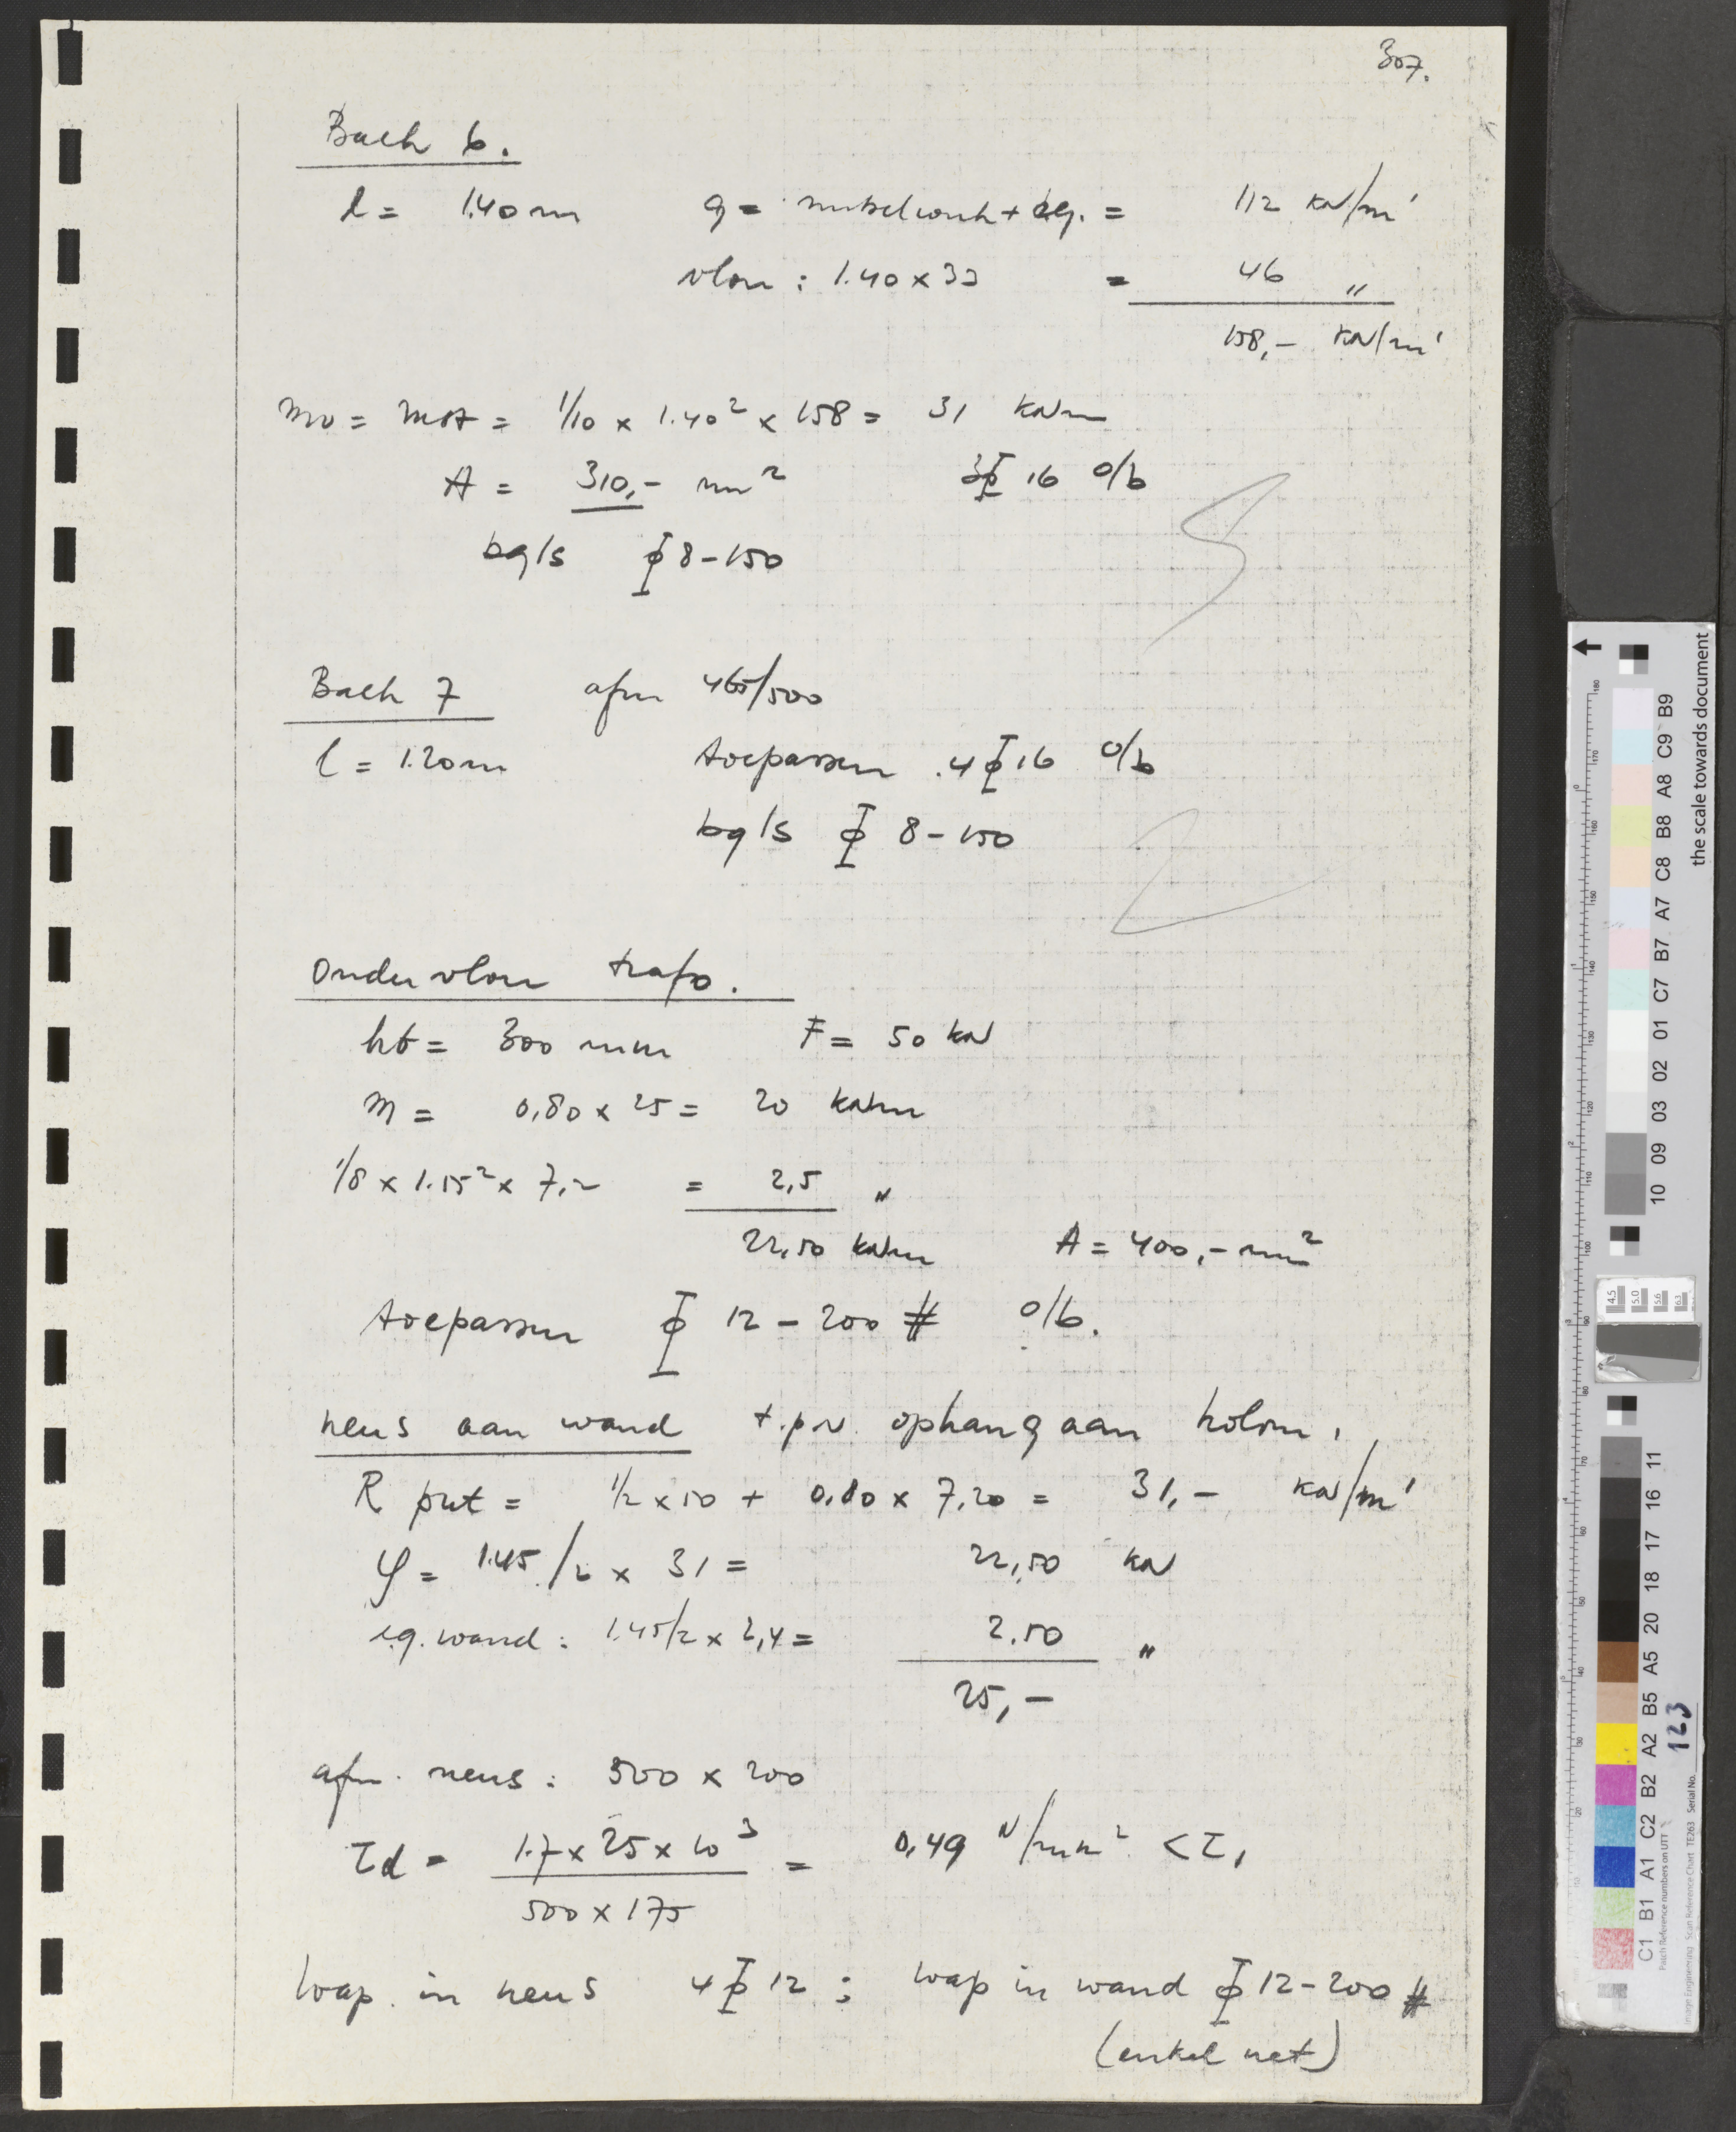 307.
Balk 6.
l = 1.40 m q = metselwerk + eg. = 112 kN/m'
vloer : 1.40 x 33 = 46 "
158,- kN/m'
mv = mst = 1/10 x 1.40² x 158 = 31 kNm
A = 310,- mm² 3ϕ 16 o/b
bgls ϕ 8-150
Balk 7 afm 465/500
l = 1.20 m toepassen 4ϕ16 o/b
bgls ϕ 8-150
Onder vloer trafo.
ht = 300 mm F = 50 kN
m = 0,80 x 25 = 20 kNm
1/8 x 1.15² x 7,2 = 2,5 "
22,50 kNm A = 400,- mm²
toepassen ϕ 12-200 # o/b.
neus aan wand t.p.v. ophang aan kolom.
R put = 1/2 x 50 + 0.80 x 7,20 = 31,- kN/m'
φ = 1.45/2 x 31 = 22,50 kN
e.g. wand : 1.45/2 x 2,4 = 2.50 "
25,-
afm. neus : 500 x 200
τd = 1.7 x 25 x 10³ = 0,49 N/mm² < τ1
500 x 175
wap. in neus 4ϕ12 ; wap in wand ϕ12-200 #
(enkel net)
the scale towards document
B9
C9
A8
B8
C8
A7
B7
C7
01
02
03
09
10
11
16
17
18
20
A5
B5
A2
B2
C2
A1
B1
C1
Image Engineering Scan Reference Chart TE263 Serial No. 123
Patch Reference numbers on UTT